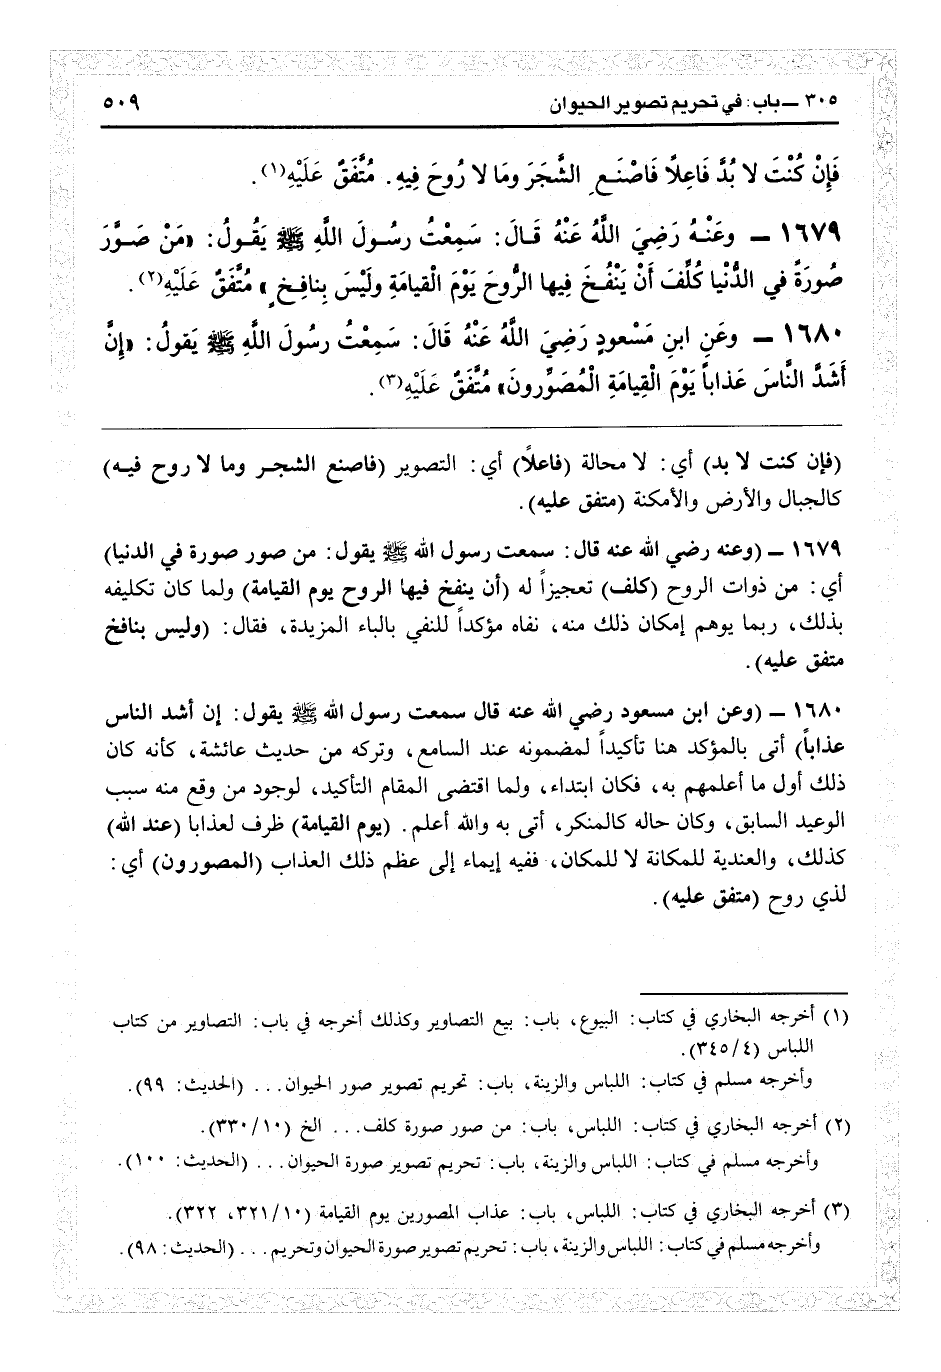 ٣٠٥ ــ باب: في تحريم تصوير الحيوان
٥٠٩
فَإِنْ كُنْتَ لا بُدَّ فَاعِلاً فَاصْنَعِ الشَّجَرَ ومَا لا رُوحَ فِيهِ. مُتَّفَقٌ عَلَيْهِ(١).
١٦٧٩ ــ وعَنْهُ رَضِيَ اللَّهُ عَنْهُ قَالَ: سَمِعْتُ رسُولَ اللَّهِ ﷺ يَقُولُ: «مَنْ صَوَّرَ
صُورَةً في الدُّنْيا كُلِّفَ أَنْ يَنْفُخَ فِيها الرُّوحَ يَوْمَ الْقيامَةِ ولَيْسَ بِنافِخٍ» مُتَّفَقٌ عَلَيْهِ(٢).
١٦٨٠ ــ وعَنِ ابنِ مَسْعودٍ رَضِيَ اللَّهُ عَنْهُ قَالَ: سَمِعْتُ رسُولَ اللَّهِ ﷺ يَقولُ: «إِنَّ
أَشَدَّ النَّاسَ عَذاباً يَوْمَ الْقِيامَةِ الْمُصَوِّرونَ» مُتَّفَقٌ عَلَيْهِ(٣).
(فإن كنت لا بد) أي: لا محالة (فاعلاً) أي: التصوير (فاصنع الشجر وما لا روح فيه)
كالجبال والأرض والأمكنة (متفق عليه).
١٦٧٩ ــ (وعنه رضي الله عنه قال: سمعت رسول الله ﷺ يقول: من صور صورة في الدنيا)
أي: من ذوات الروح (كلف) تعجيزاً له (أن ينفخ فيها الروح يوم القيامة) ولما كان تكليفه
بذلك، ربما يوهم إمكان ذلك منه، نفاه مؤكداً للنفي بالباء المزيدة، فقال: (وليس بنافخ
متفق عليه).
١٦٨٠ ــ (وعن ابن مسعود رضي الله عنه قال سمعت رسول الله ﷺ يقول: إن أشد الناس
عذاباً) أتى بالمؤكد هنا تأكيداً لمضمونه عند السامع، وتركه من حديث عائشة، كأنه كان
ذلك أول ما أعلمهم به، فكان ابتداء، ولما اقتضى المقام التأكيد، لوجود من وقع منه سبب
الوعيد السابق، وكان حاله كالمنكر، أتى به والله أعلم. (يوم القيامة) ظرف لعذابا (عند الله)
كذلك، والعندية للمكانة لا للمكان، ففيه إيماء إلى عظم ذلك العذاب (المصورون) أي:
لذي روح (متفق عليه).
(١) أخرجه البخاري في كتاب: البيوع، باب: بيع التصاوير وكذلك أخرجه في باب: التصاوير من كتاب
اللباس (٣٤٥/٤).
وأخرجه مسلم في كتاب: اللباس والزينة، باب: تحريم تصوير صور الحيوان... (الحديث: ٩٩).
(٢) أخرجه البخاري في كتاب: اللباس، باب: من صور صورة كلف... الخ (٣٣٠/١٠).
وأخرجه مسلم في كتاب: اللباس والزينة، باب: تحريم تصوير صورة الحيوان... (الحديث: ١٠٠).
(٣) أخرجه البخاري في كتاب: اللباس، باب: عذاب المصورين يوم القيامة (٣٢١/١٠، ٣٢٢).
وأخرجه مسلم في كتاب: اللباس والزينة، باب: تحريم تصوير صورة الحيوان وتحريم... (الحديث: ٩٨).